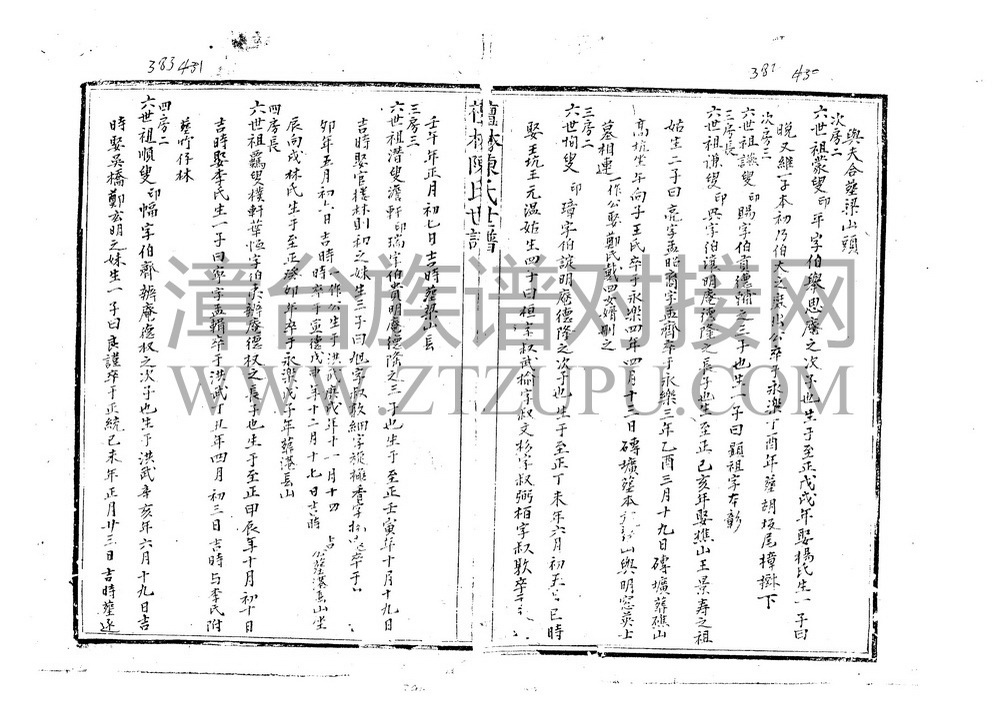 383 431
382 430
與夫合塟梁山頭
次房二
六世祖蒙叟印年字伯璨思庵之次子也生于至正戊戌年娶楊氏生一子曰
晚又維一子本初乃伯大之庶出公卒于永樂丁酉年塟胡坂尾樟樹下
次房三
六世祖謙叟印賜字伯貢德輔之三子也生一子曰顕祖字本彰
三房長
六世祖謙叟印興字伯讓明庵德隆之長子也生至正己亥年娶樵山王景寿之祖
姑生二子曰亮字孟昭裔字孟齊卒于永樂三年乙酉三月十九日磚壙葬礁山
高坑坐年向子王氏卒于永樂四年四月十三日磚壙塟本山與明窓英士
墓相連一作公娶鄭氏戴四女婿刪之
三房二
六世恂叟印璋字伯誼明庵德隆之次子也生于至正丁未年六月初五日巳時
娶王坑王元温姑生四子曰桓字叔武榆字叔文杉字叔弼栢字叔歌卒
檀林陳氏世譜
壬午年正月初七日吉時塟梁山長
三房三
六世祖潜叟澹軒印瑞字伯貴明庵德隆之三子也生于至正壬寅年十月十九日
吉時娶官樓林則初之妹生三子曰旭字叔放細字叔極香字卒于
卯年五月初六日吉時一作公生于洪武庚戌年十一月十四
時卒于宣德戊申年十二月十七日吉時公塟湛長山坐
辰向戌林氏生于至正癸卯年卒于永樂戊子年葬湛長山
四房長
六世祖羈叟樸軒葉恒字伯夫辦庵德权之長子也生于至正甲辰年十月初十日
吉時娶李氏生一子曰宗字孟楫卒于洪武丁丑年四月初三日吉時与李氏附
塟竹仔林
四房二
六世祖順叟印幅字伯齋辦庵德叔之次子也生于洪武辛亥年六月十九日吉
時娶吳橋鄭玄明之妹生一子曰良謹卒于正統己未年正月廿三日吉時塟逐
漳台族谱对接网
WWW.ZTZUPU.COM